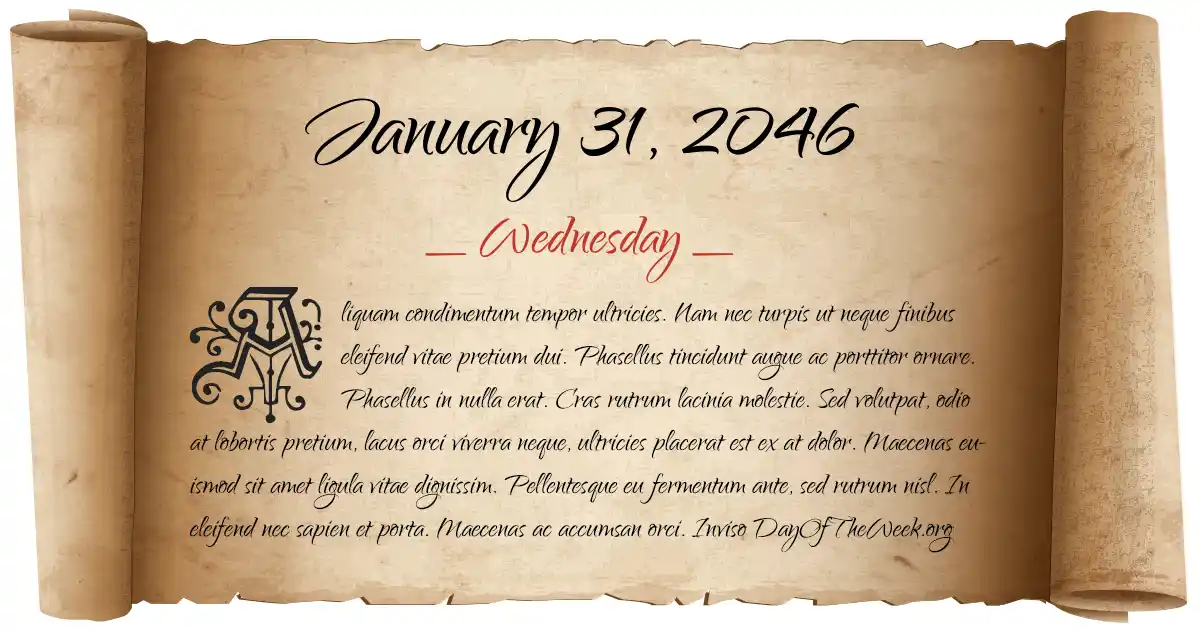 January 31, 2046
Wednesday
Aliquam condimentum tempor ultricies. Nam nec turpis ut neque finibus
eleifend vitae pretium dui. Phasellus tincidunt augue ac porttitor ornare.
Phasellus in nulla erat. Cras rutrum lacinia molestie. Sed volutpat, odio
at lobortis pretium, lacus orci viverra neque, ultricies placerat est ex at dolor. Maecenas eu-
ismod sit amet ligula vitae dignissim. Pellentesque eu fermentum ante, sed rutrum nisl. In
eleifend nec sapien et porta. Maecenas ac accumsan orci. Inviso DayOfTheWeek.org